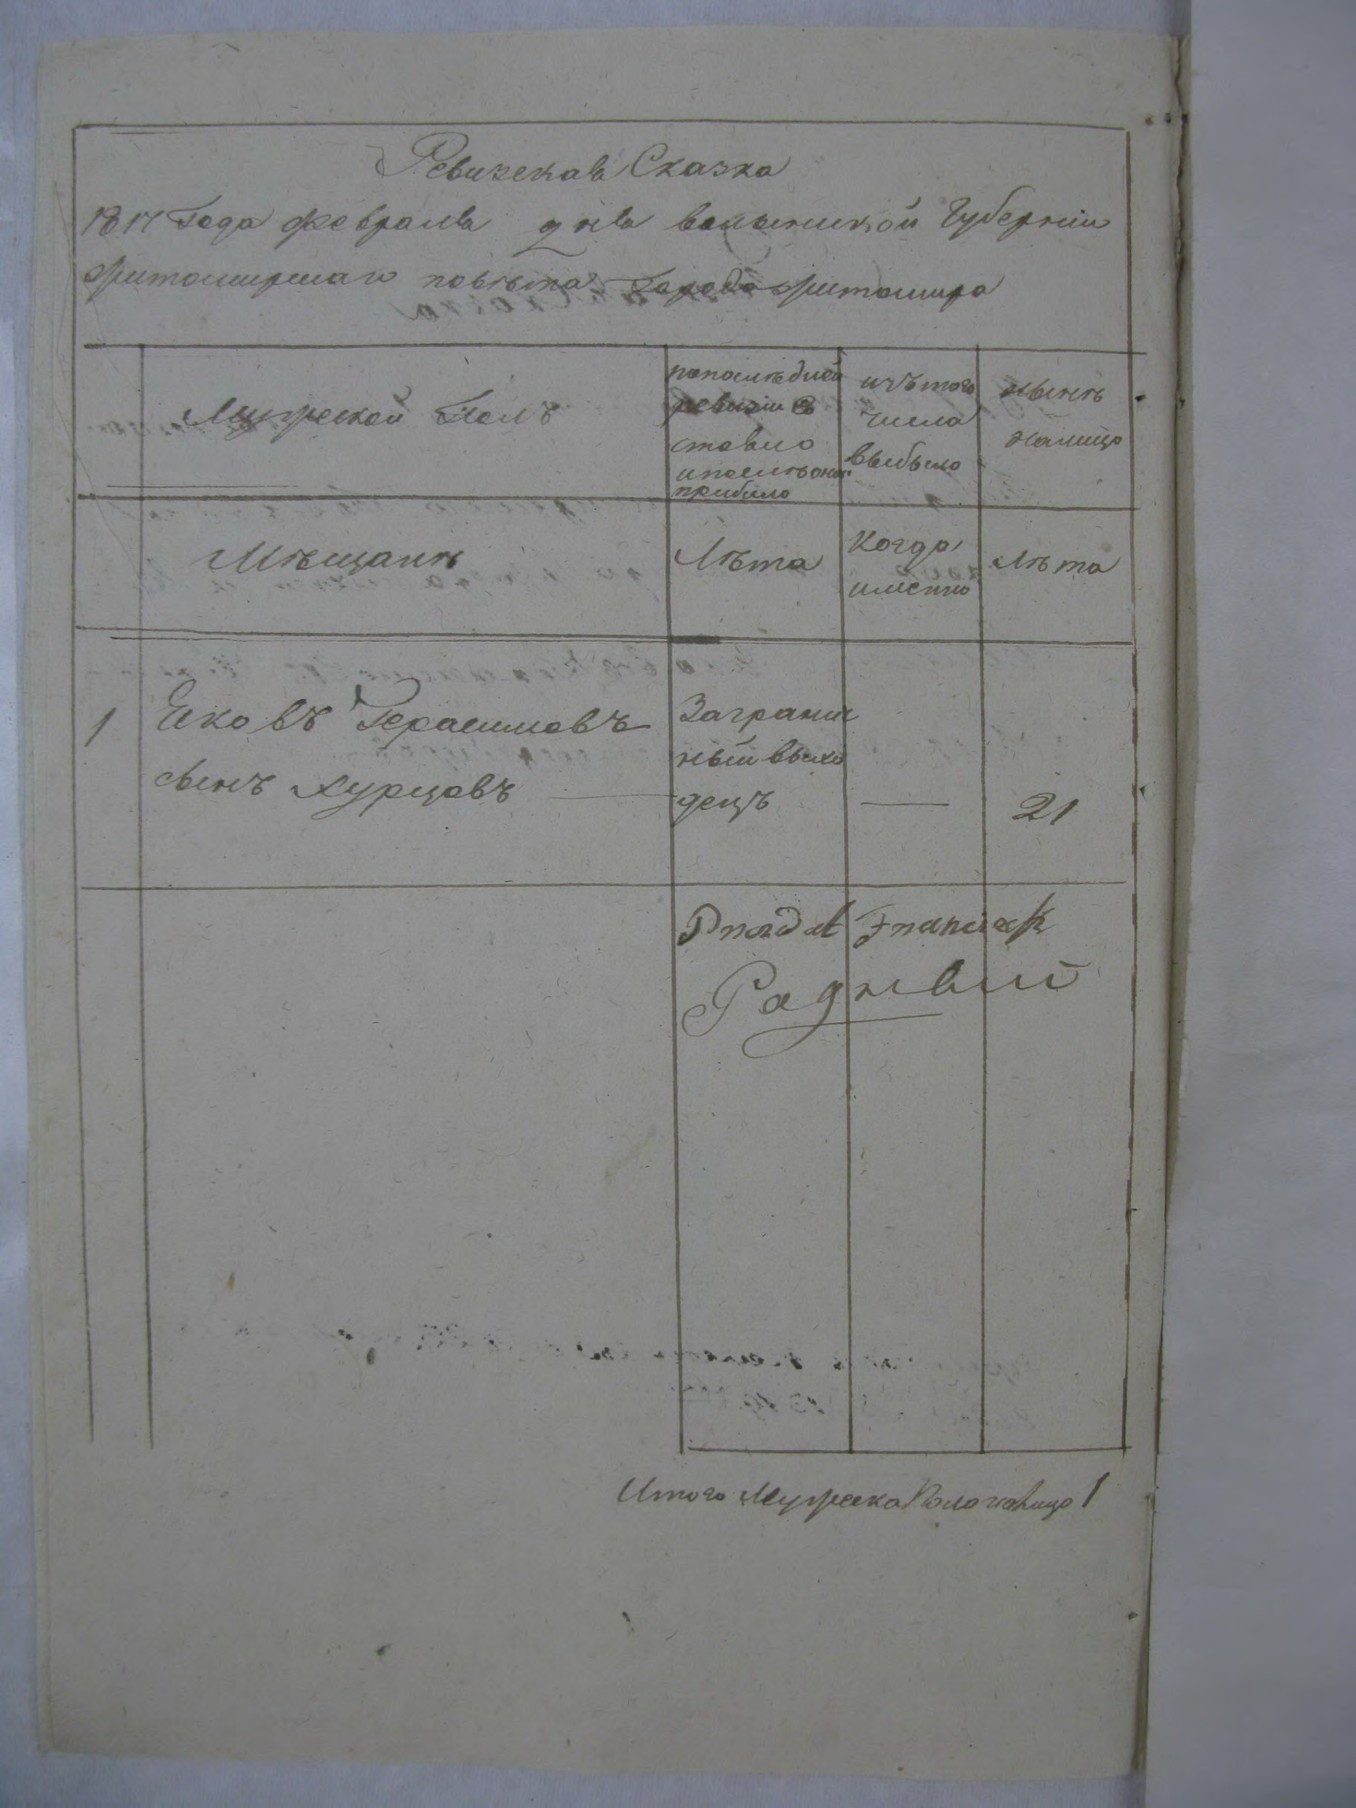 Ревизская Сказка
1817 Года февраля дня волынской Губернии
житомирскаго повѣта Города житомира
Мужеской Полъ
попослѣдней
ревизіи со
стояло
ипослѣоной
прибыло
изътого
числа
выбыло
нынѣ
налицо
Мѣщанѣ
Лѣта
Когда
имѣнно
Лѣта
1 Яковъ Герасимовъ
сынъ Хурцовъ
Заграни
ный выхо
децъ
— 21
Franciszek
Радный
Итого Мужеска Пола налицо 1